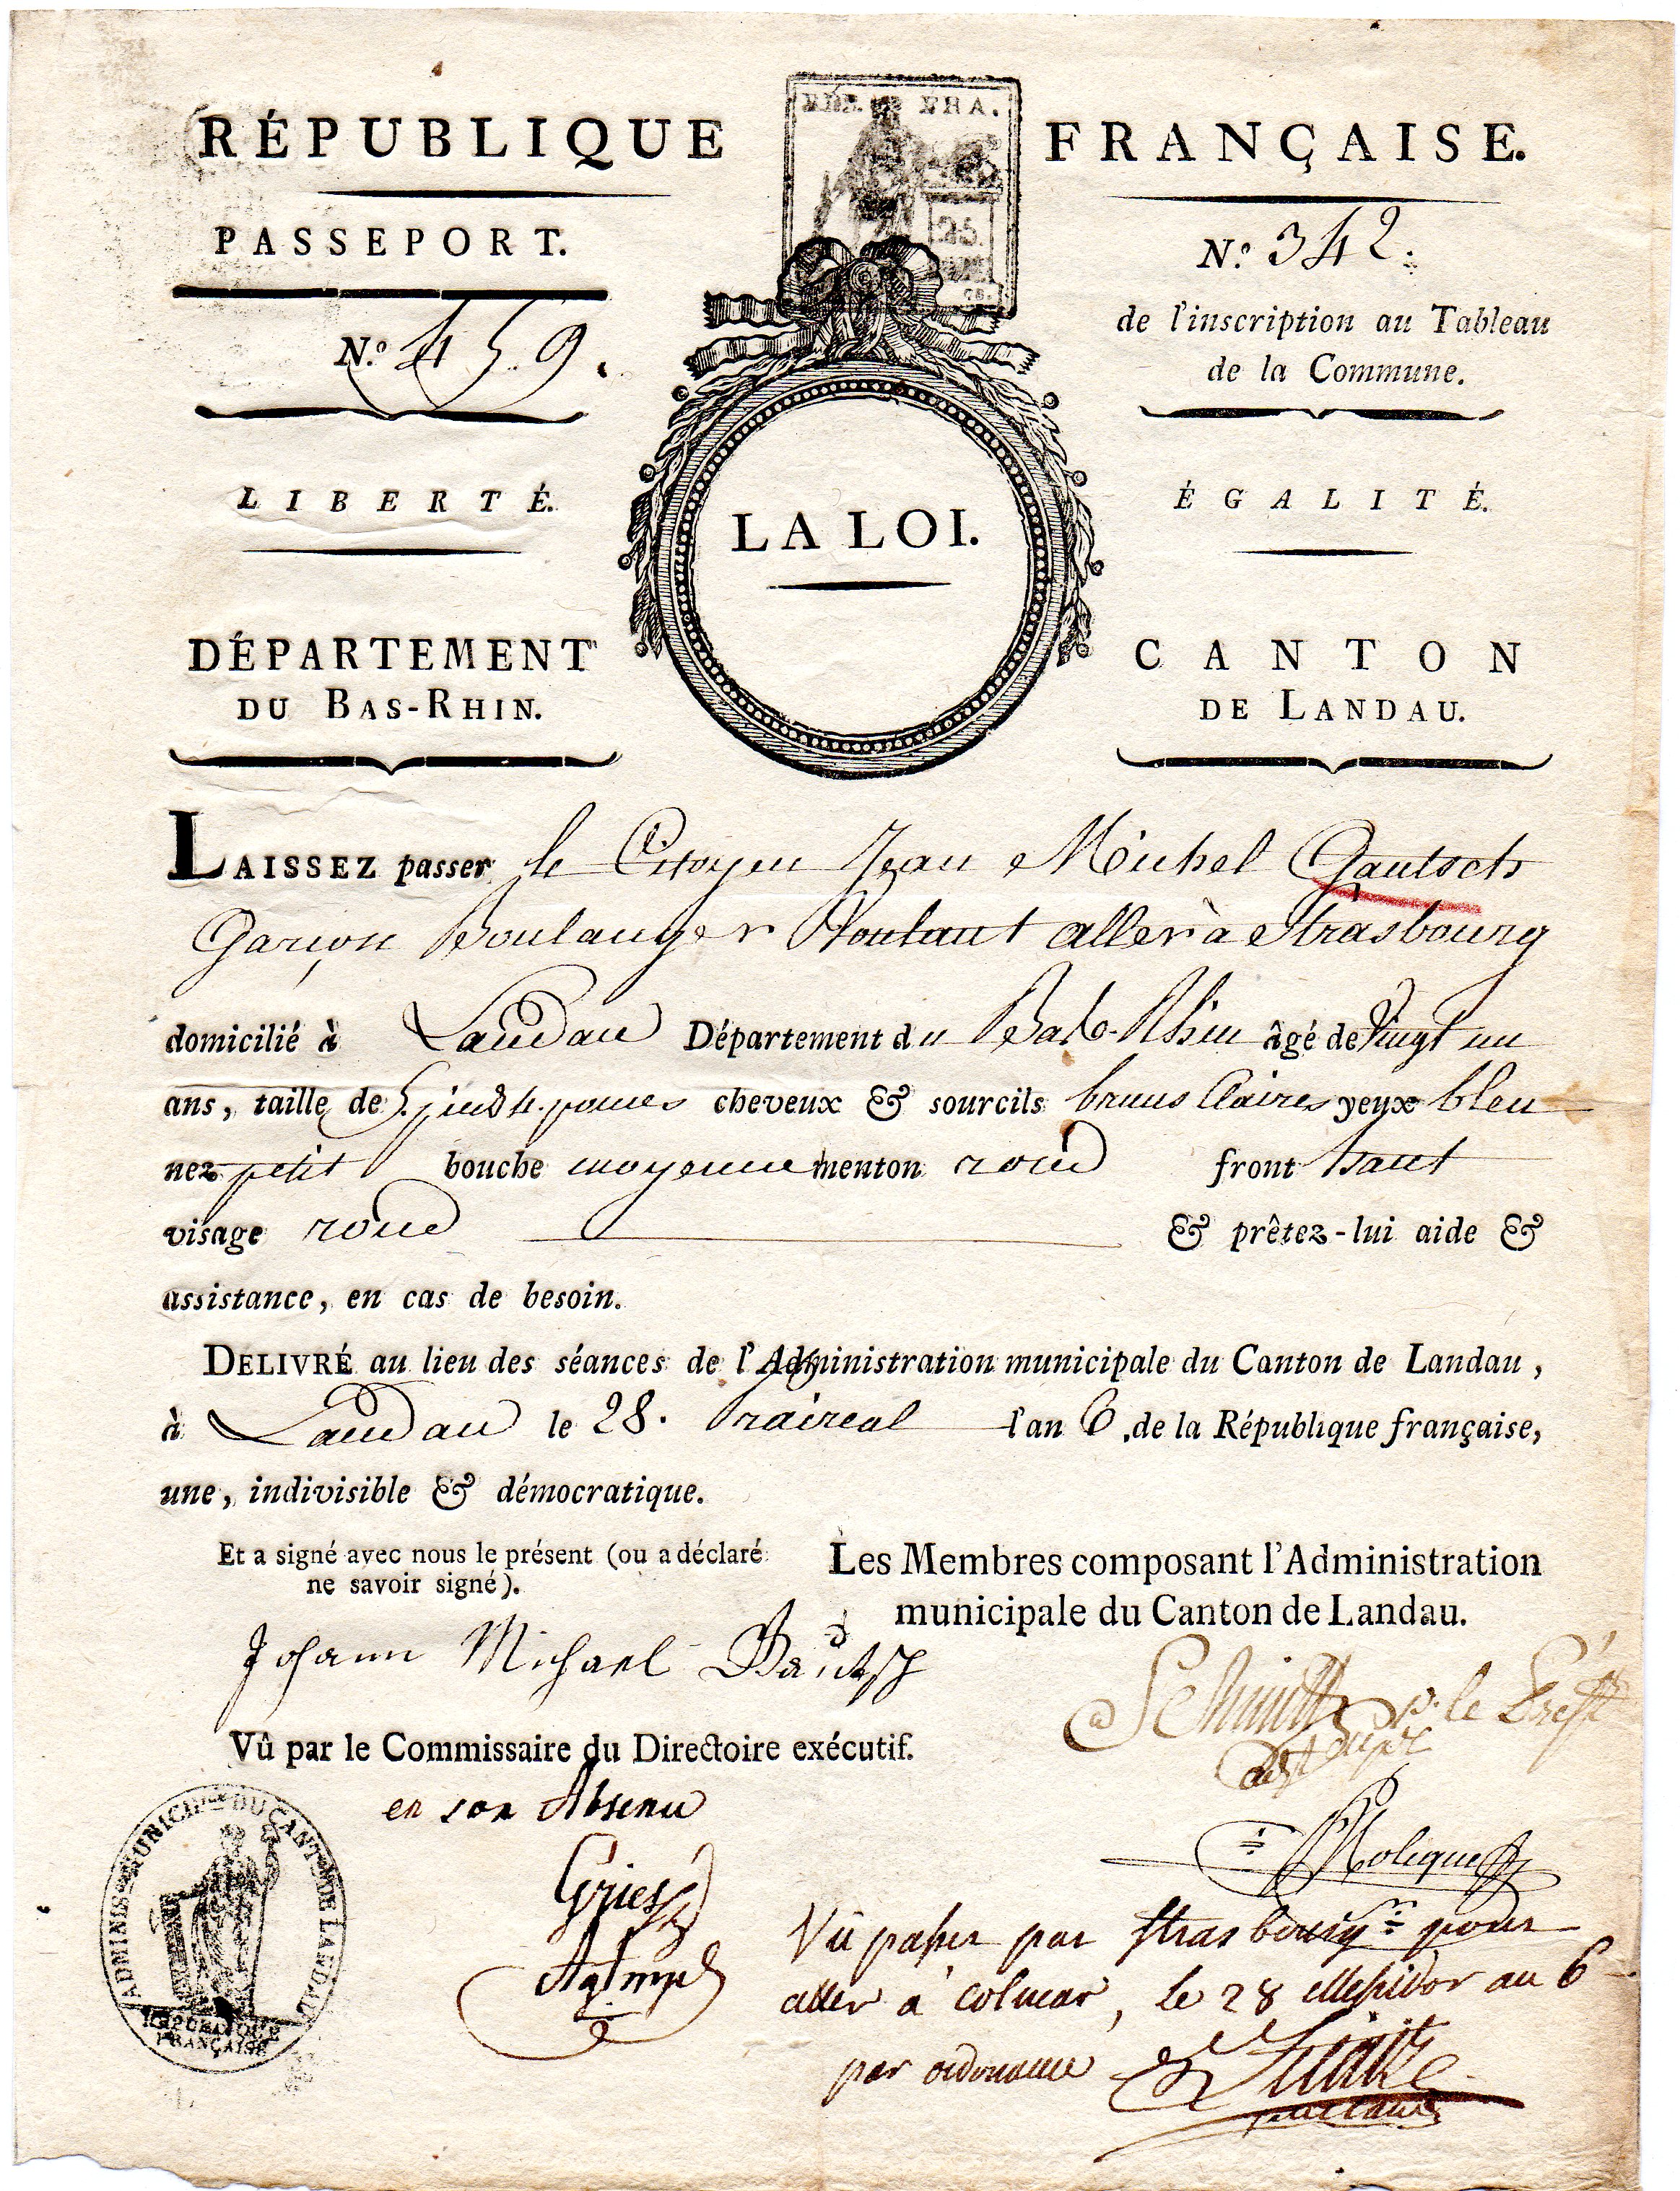 RÉPUBLIQUE FRANÇAISE.
FRA.
25.
PASSEPORT.
N.º 459.
N.º 342.
de l'inscription au Tableau
de la Commune.
LIBERTÉ.
ÉGALITÉ.
LA LOI.
DÉPARTEMENT
DU BAS-RHIN.
CANTON
DE LANDAU.
LAISSEZ passer le Citoyen Jean Michel Gautsch
Garçon Boulanger Voulant aller à Strasbourg
domicilié à Landau Département du Bas-Rhin âgé de Vingt un
ans, taille de 5 pieds 4. pouces cheveux & sourcils bruns Claires yeux bleu
nez petit bouche moyenne menton rond front haut
visage rond & prêtez-lui aide &
assistance, en cas de besoin.
DELIVRÉ au lieu des séances de l'Administration municipale du Canton de Landau,
à Landau le 28. Prairéal l'an 6 de la République française,
une, indivisible & démocratique.
Et a signé avec nous le présent (ou a déclaré
ne savoir signé).
Les Membres composant l'Administration
municipale du Canton de Landau.
Johann Michael
Schmitt p. le
Vû par le Commissaire du Directoire exécutif.
en son Absence
Gries
Ag. mpl
Vu passer par Strasbourg pour
aller à Colmar, le 28 Messidor an 6
par ordonance
ADMINIS. MUNICIP. DU CANT. DE LANDAU
RÉPUBLIQUE
FRANÇAISE